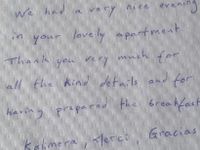 We had a very nice evening
in your lovely apartment.
Thank you very much for
all the kind details and for
having prepared the breakfast
Kalimera, Merci, Gracias